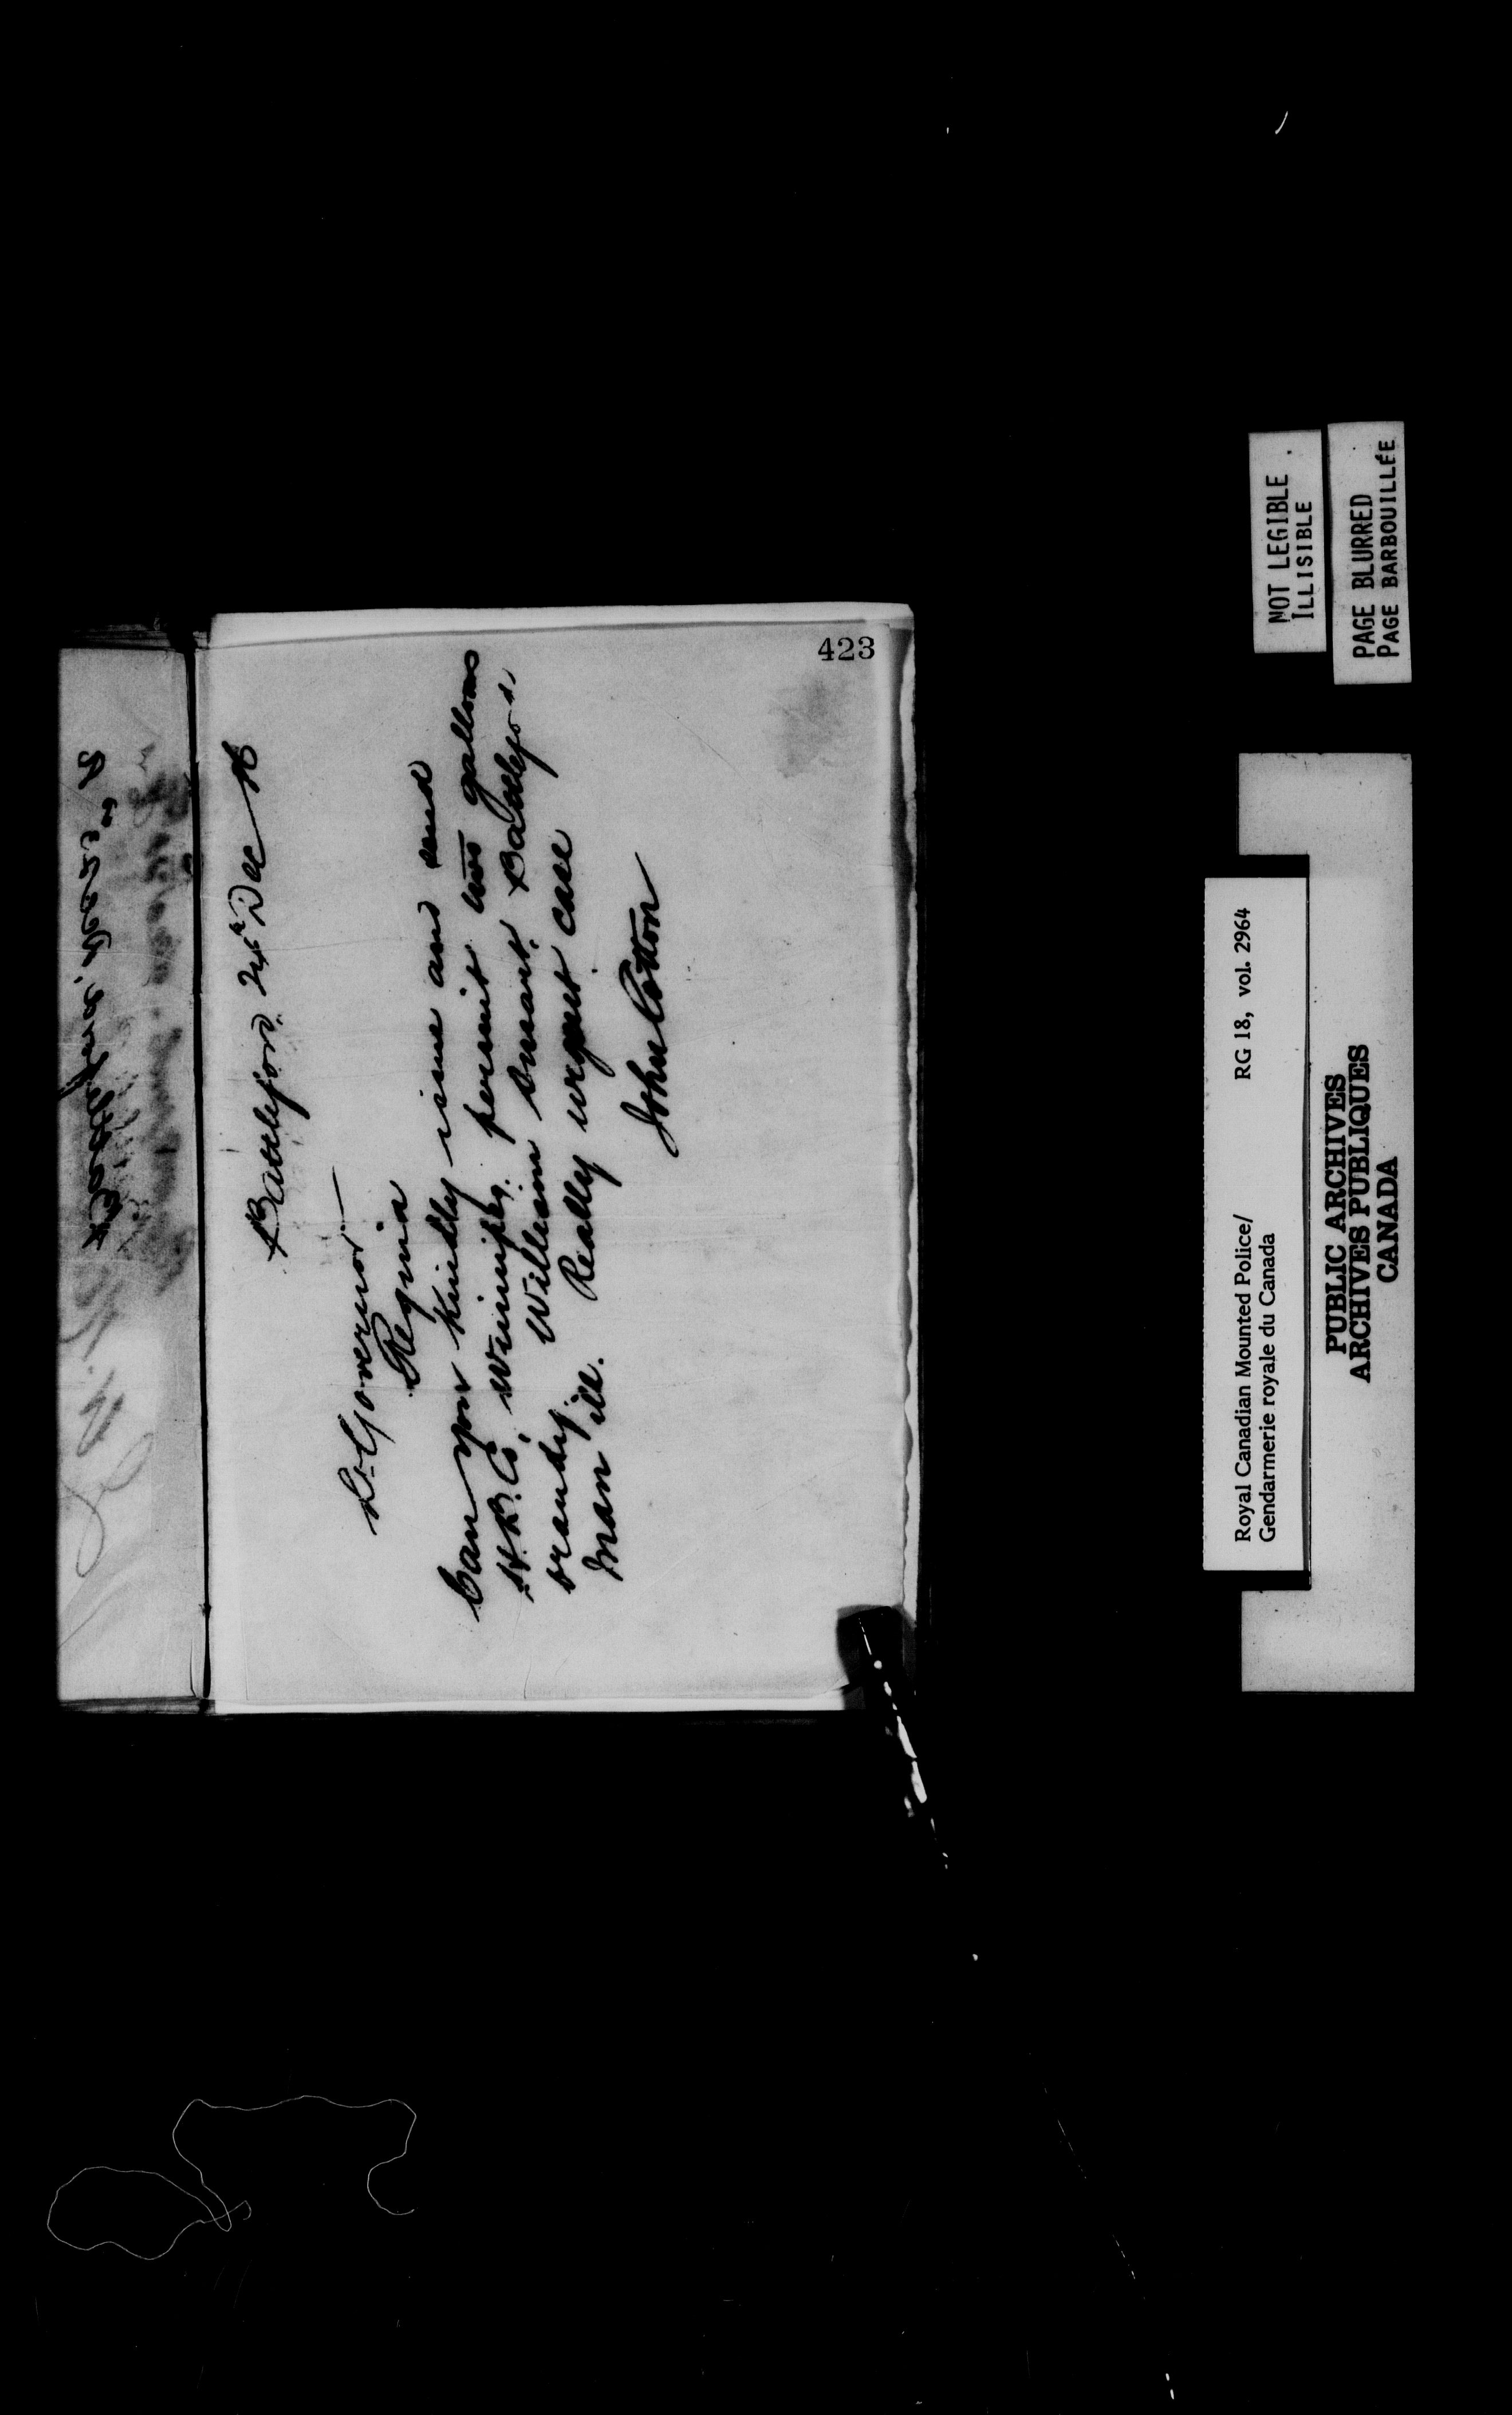 423
Battleford, 24th Dec
Lt. Governor
Regina
Can you kindly issue and send
H.B. Co, Winnipeg, permit two gallons
brandy. William Smart, Battleford
Really urgent case
man ill.
John Cotton
NOT LEGIBLE
ILLISIBLE
PAGE BLURRED
PAGE BARBOUILLÉE
Royal Canadian Mounted Police/ RG 18, vol. 2964
Gendarmerie royale du Canada
PUBLIC ARCHIVES
ARCHIVES PUBLIQUES
CANADA